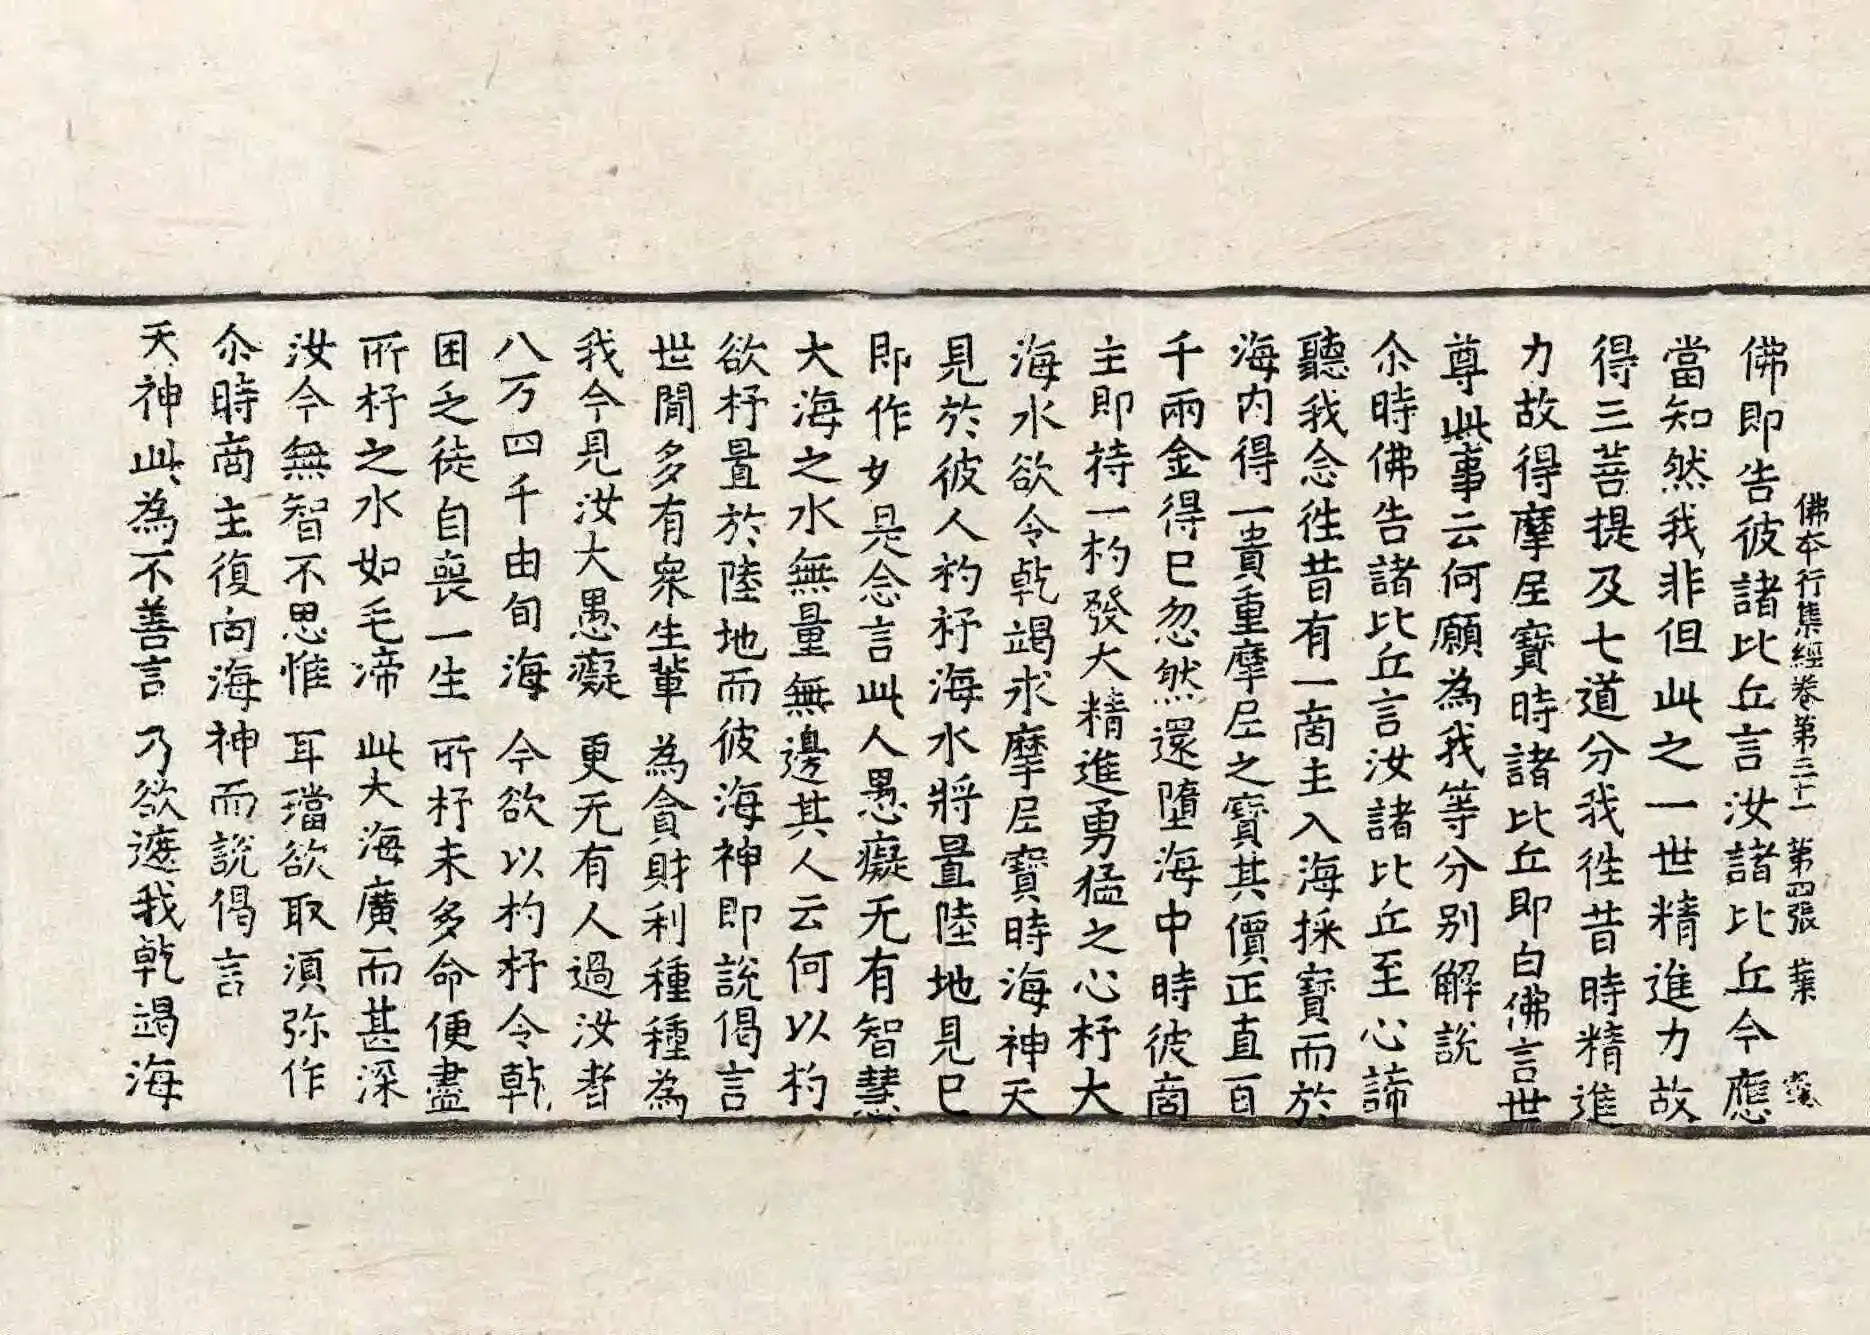 佛本行集經卷第三十一 第四張 葉
佛即告彼諸比丘言汝諸比丘今應
當知然我非但此之一世精進力故
得三菩提及七道分我徃昔時精進
力故得摩𡰱寶時諸比丘即白佛言世
尊此事云何願為我等分別解說
尒時佛告諸比丘言汝諸比丘至心諦
聽我念徃昔有一商主入海採寶而於
海內得一貴重摩𡰱之寶其價正直百
千兩金得已忽然還墮海中時彼商
主即持一杓發大精進勇猛之心抒大
海水欲令乾竭求摩𡰱寶時海神天
見於彼人杓抒海水將置陸地見已
即作如是念言此人愚癡无有智慧
大海之水無量無邊其人云何以杓
欲抒置於陸地而彼海神即說偈言
世間多有眾生輩 為貪財利種種為
我今見汝大愚癡 更无有人過汝者
八万四千由旬海 今欲以杓抒令乾
困乏徒自喪一生 所抒未多命便盡
所抒之水如毛渧 此大海廣而甚深
汝今無智不思惟 耳璫欲取須弥作
尒時商主復向海神而說偈言
天神此為不善言 乃欲遮我乾竭海